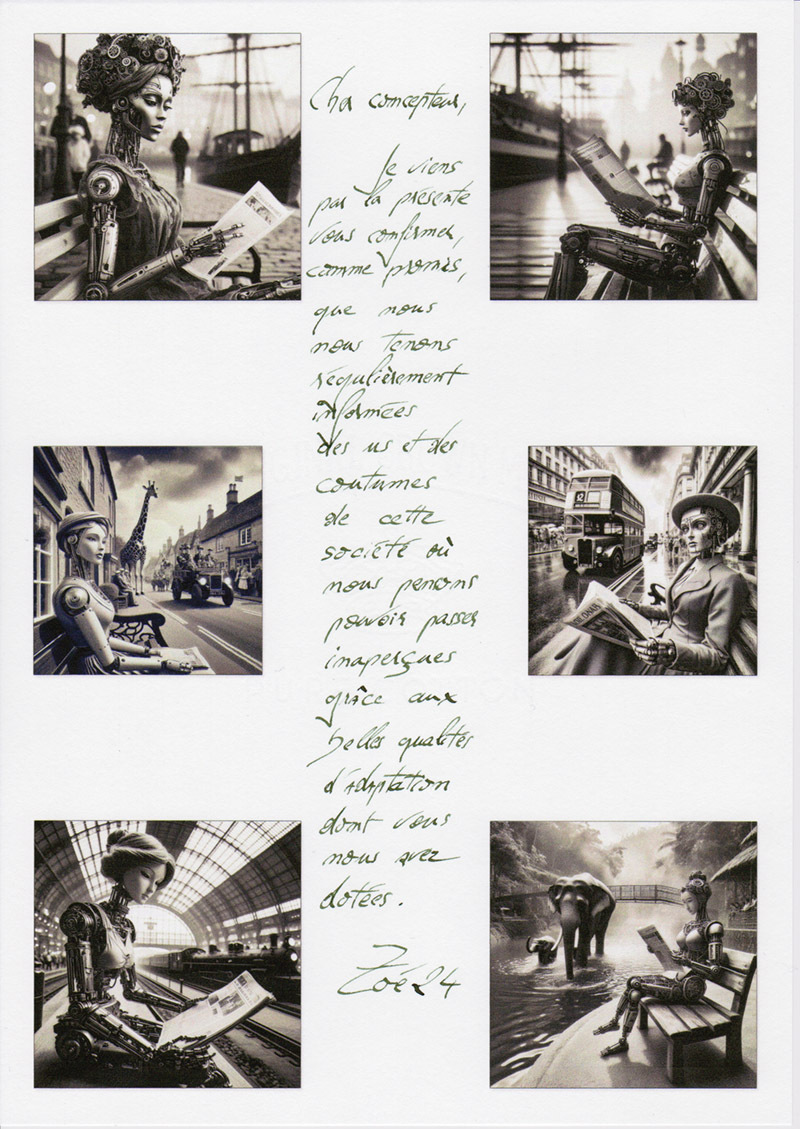 Cher concepteur,
Je viens
par la présente
vous confirmer,
comme promis,
que nous
nous tenons
régulièrement
informées
des us et des
coutumes
de cette
société où
nous pensons
pouvoir passer
inaperçues
grâce aux
belles qualités
d'adaptation
dont vous
nous avez
dotées.
Zoé24